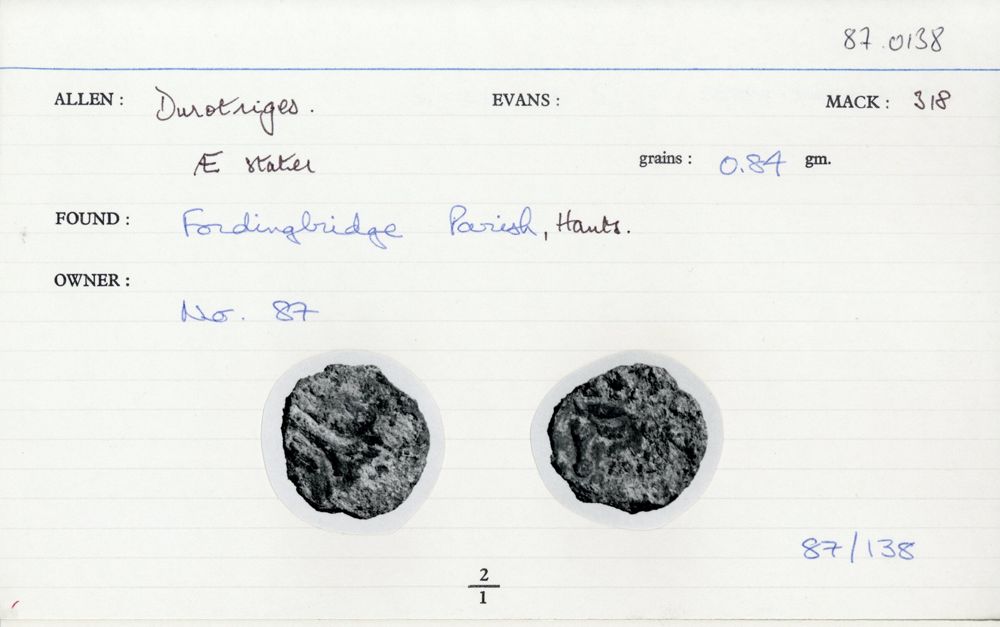 87.0138
ALLEN : Durotriges. EVANS : MACK : 318
Æ stater grains : 0.84 gm.
FOUND : Fordingbridge Parish, Hants.
OWNER :
No. 87
87/138
2
1